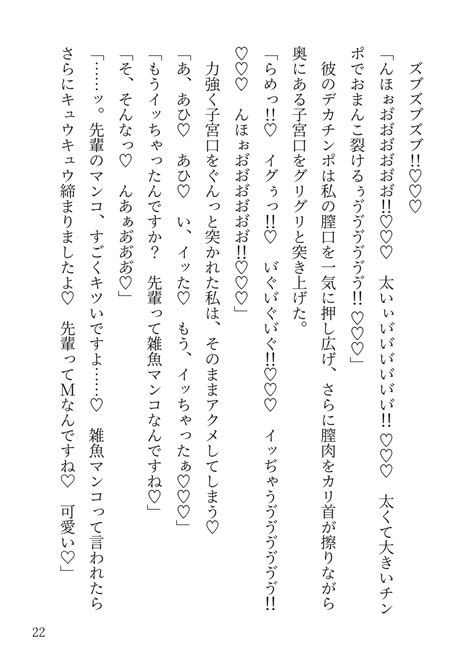 ズブズブズブ!!♡♡♡
「んほぉお゙お゙お゙お゙お゙お゙!!♡♡♡　太いぃい゙い゙い゙い゙い゙い゙!!♡♡♡　太くて大きいチン
ポでおまんこ裂けるぅゔゔゔゔゔ!!♡♡♡」
彼のデカチンポは私の膣口を一気に押し広げ、さらに膣肉をカリ首が擦りながら
奥にある子宮口をグリグリと突き上げた。
「らめっ!!♡　イグぅっ!!♡　い゙ぐい゙ぐい゙ぐ!!♡♡♡　イッぢゃうゔゔゔゔゔ!!
♡♡♡　んほぉお゙お゙お゙お゙お゙!!♡♡♡」
力強く子宮口をぐんっと突かれた私は、そのままアクメしてしまう♡
「あ、あひ♡　あひ♡　い、イッた♡　もう、イッちゃったぁ♡♡♡」
「もうイッちゃったんですか？　先輩って雑魚マンコなんですね♡」
「そ、そんなっ♡　んあぁあ゙あ゙あ゙♡」
「……ッ。先輩のマンコ、すごくキツいですよ……♡　雑魚マンコって言われたら
さらにキュウキュウ締まりましたよ♡　先輩ってMなんですね♡　可愛い♡」
22